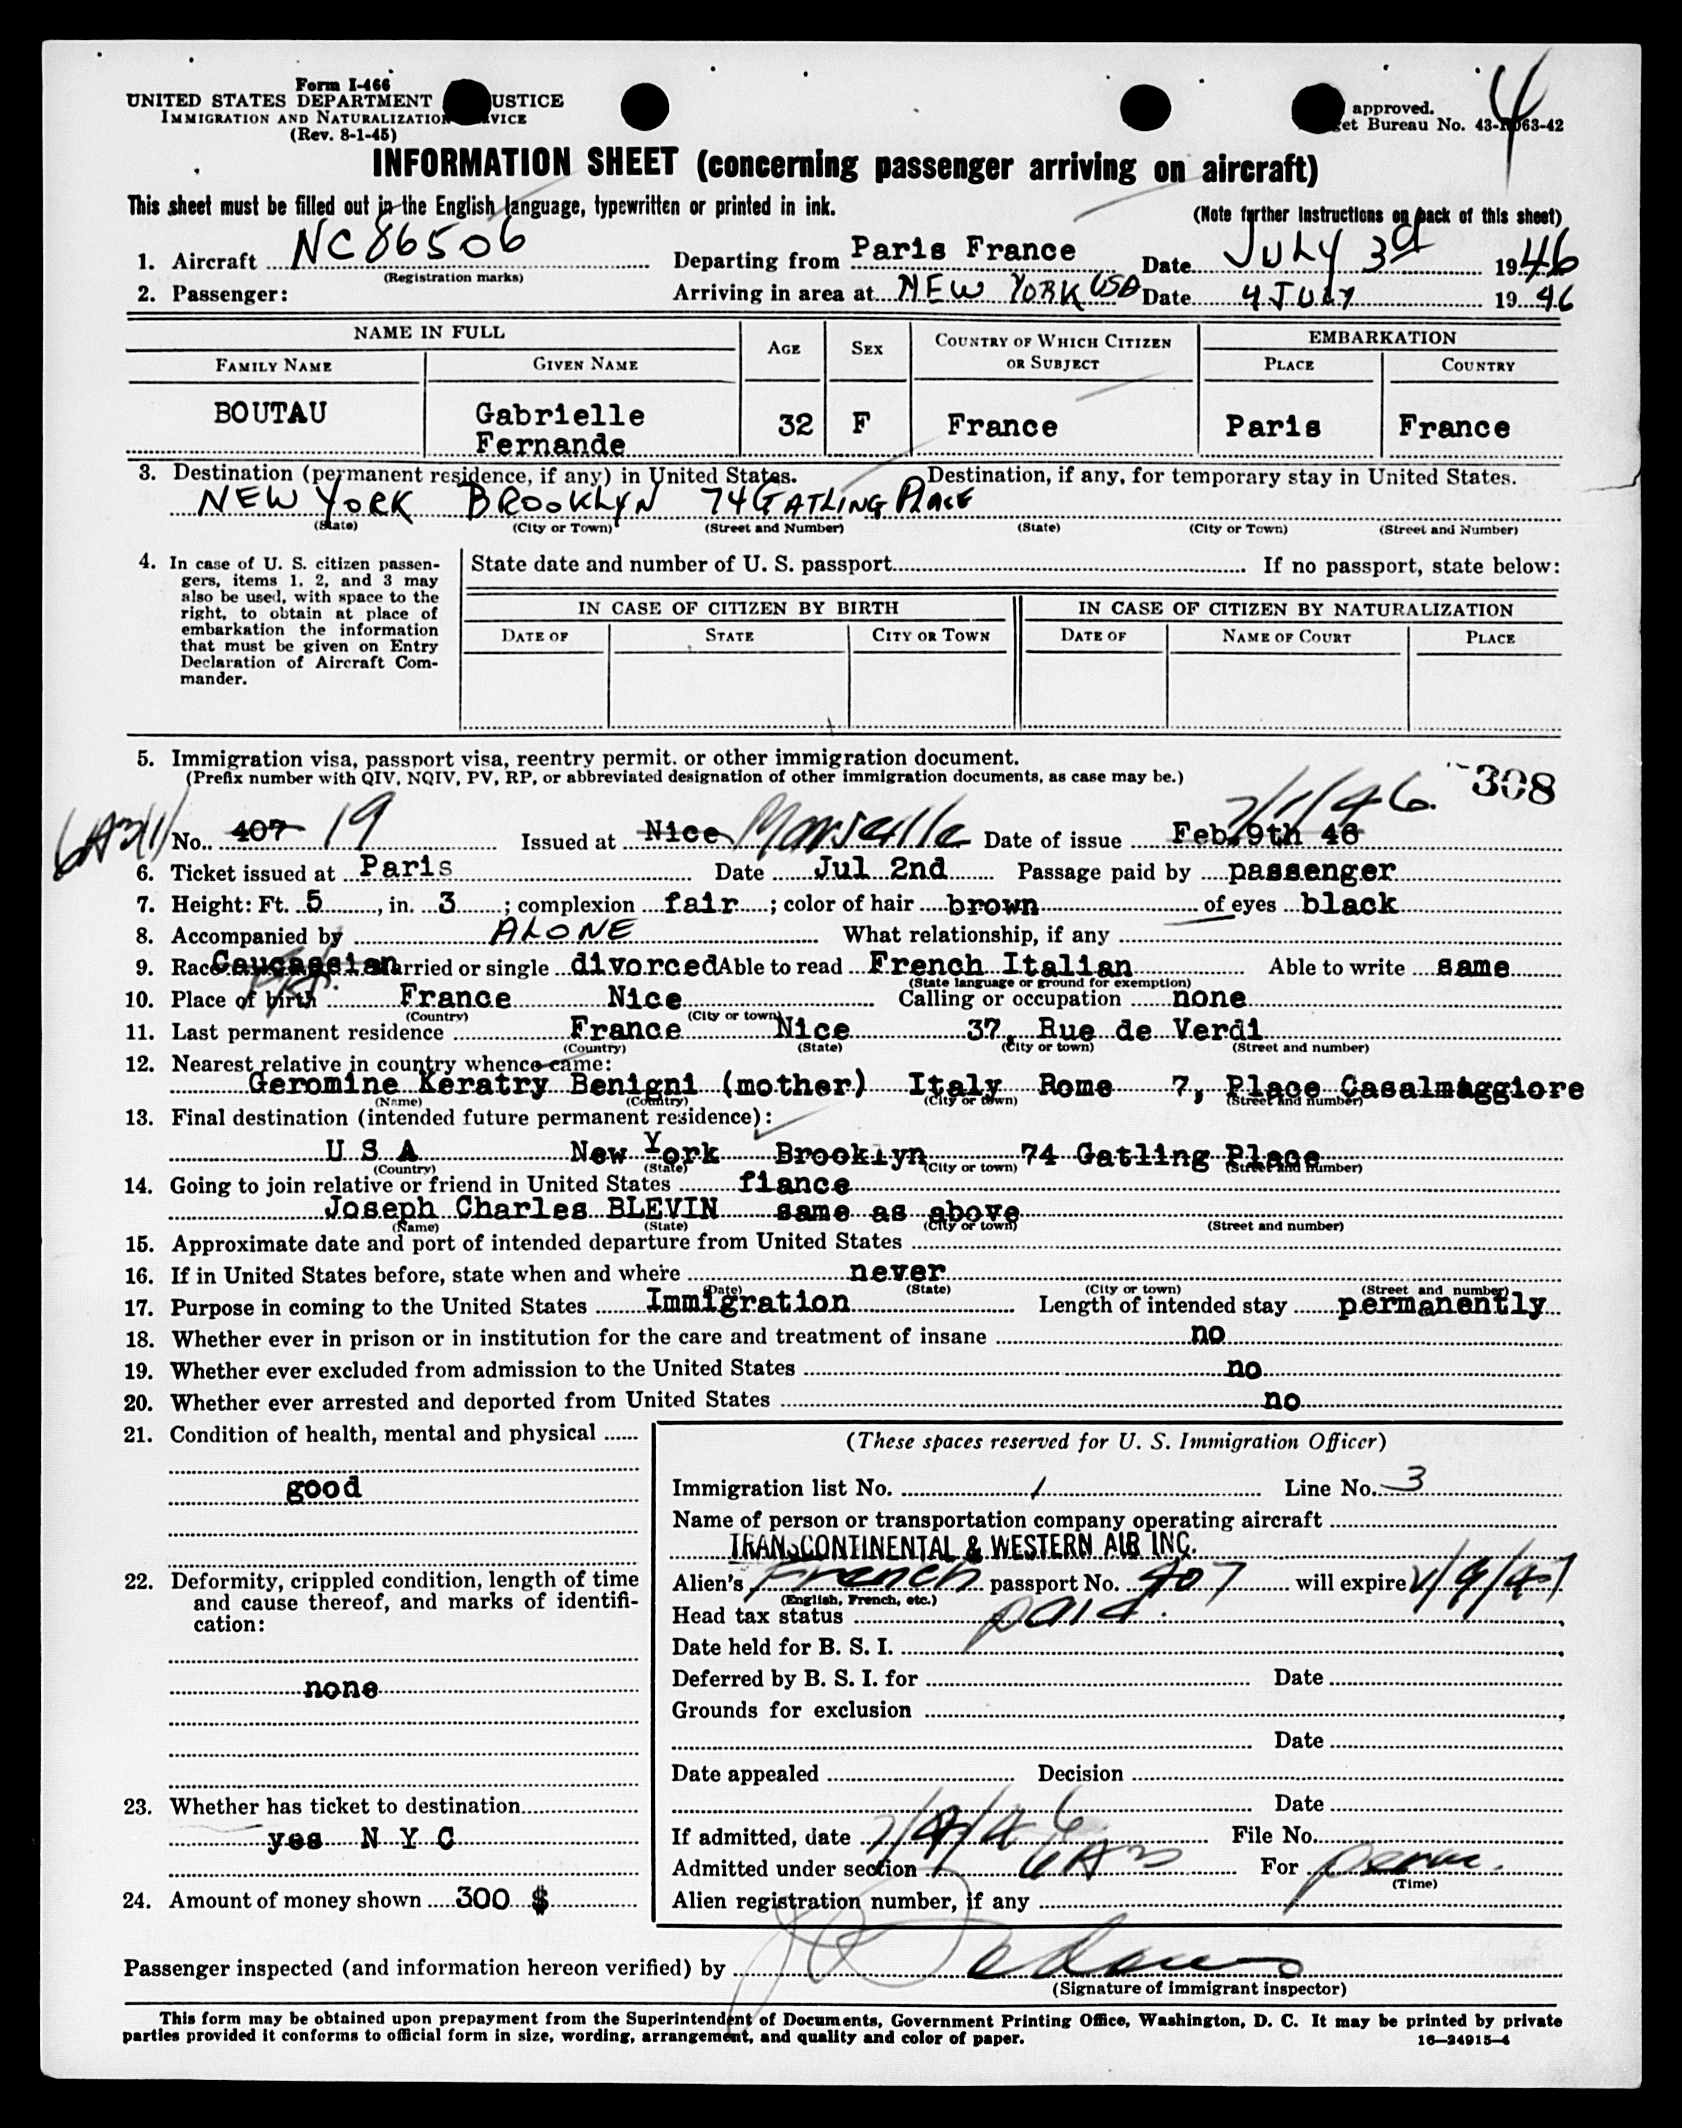 Form I-466
UNITED STATES DEPARTMENT USTICE
IMMIGRATION AND NATURALIZATION VICE
(Rev. 8-1-45)
approved.
et Bureau No. 43-R063-42
4
INFORMATION SHEET (concerning passenger arriving on aircraft)
This sheet must be filled out in the English language, typewritten or printed in ink.
(Note further instructions on back of this sheet)
1. Aircraft NC86506 Departing from Paris France Date JULY 3rd 1946
(Registration marks)
2. Passenger: Arriving in area at NEW YORK USA Date 4 JULY 1946
NAME IN FULL AGE SEX COUNTRY OF WHICH CITIZEN OR SUBJECT EMBARKATION
FAMILY NAME GIVEN NAME PLACE COUNTRY
BOUTAU Gabrielle Fernande 32 F France Paris France
3. Destination (permanent residence, if any) in United States. Destination, if any, for temporary stay in United States.
NEW YORK BROOKLYN 74 GATLING PLACE
(State) (City or Town) (Street and Number) (State) (City or Town) (Street and Number)
4. In case of U. S. citizen passen-
gers, items 1, 2, and 3 may
also be used, with space to the
right, to obtain at place of
embarkation the information
that must be given on Entry
Declaration of Aircraft Com-
mander.
State date and number of U. S. passport If no passport, state below:
IN CASE OF CITIZEN BY BIRTH IN CASE OF CITIZEN BY NATURALIZATION
DATE OF STATE CITY OR TOWN DATE OF NAME OF COURT PLACE
5. Immigration visa, passport visa, reentry permit, or other immigration document.
(Prefix number with QIV, NQIV, PV, RP, or abbreviated designation of other immigration documents, as case may be.)
308
7/1/46.
No. 407 19 Issued at Nice Marseille Date of issue Feb.9th 46
6. Ticket issued at Paris Date Jul 2nd Passage paid by passenger
7. Height: Ft. 5, in. 3; complexion fair; color of hair brown of eyes black
8. Accompanied by ALONE What relationship, if any
9. Race Caucassian Married or single divorced Able to read French Italian Able to write same
(State language or ground for exemption)
10. Place of birth France Nice Calling or occupation none
(Country) (City or town)
11. Last permanent residence France Nice 37, Rue de Verdi
(Country) (State) (City or town) (Street and number)
12. Nearest relative in country whence came:
Geromine Keratry Benigni (mother) Italy Rome 7, Place Casalmaggiore
(Name) (Country) (City or town) (Street and number)
13. Final destination (intended future permanent residence):
U S A New York Brooklyn 74 Gatling Place
(Country) (State) (City or town) (Street and number)
14. Going to join relative or friend in United States fiance
Joseph Charles BLEVIN same as above
(Name) (State) (City or town) (Street and number)
15. Approximate date and port of intended departure from United States
16. If in United States before, state when and where never
(Date) (State) (City or town) (Street and number)
17. Purpose in coming to the United States Immigration Length of intended stay permanently
18. Whether ever in prison or in institution for the care and treatment of insane no
19. Whether ever excluded from admission to the United States no
20. Whether ever arrested and deported from United States no
21. Condition of health, mental and physical
good
22. Deformity, crippled condition, length of time
and cause thereof, and marks of identifi-
cation:
none
23. Whether has ticket to destination
yes N Y C
24. Amount of money shown 300 $
(These spaces reserved for U. S. Immigration Officer)
Immigration list No. 1 Line No. 3
Name of person or transportation company operating aircraft
TRANSCONTINENTAL & WESTERN AIR INC.
Alien's French passport No. 407 will expire
(English, French, etc.)
Head tax status paid.
Date held for B. S. I.
Deferred by B. S. I. for Date
Grounds for exclusion
Date
Date appealed Decision
Date
If admitted, date 7/4/46 File No.
Admitted under section 6A3 For perm.
(Time)
Alien registration number, if any
Passenger inspected (and information hereon verified) by
(Signature of immigrant inspector)
This form may be obtained upon prepayment from the Superintendent of Documents, Government Printing Office, Washington, D. C. It may be printed by private
parties provided it conforms to official form in size, wording, arrangement, and quality and color of paper.
16—24915-4